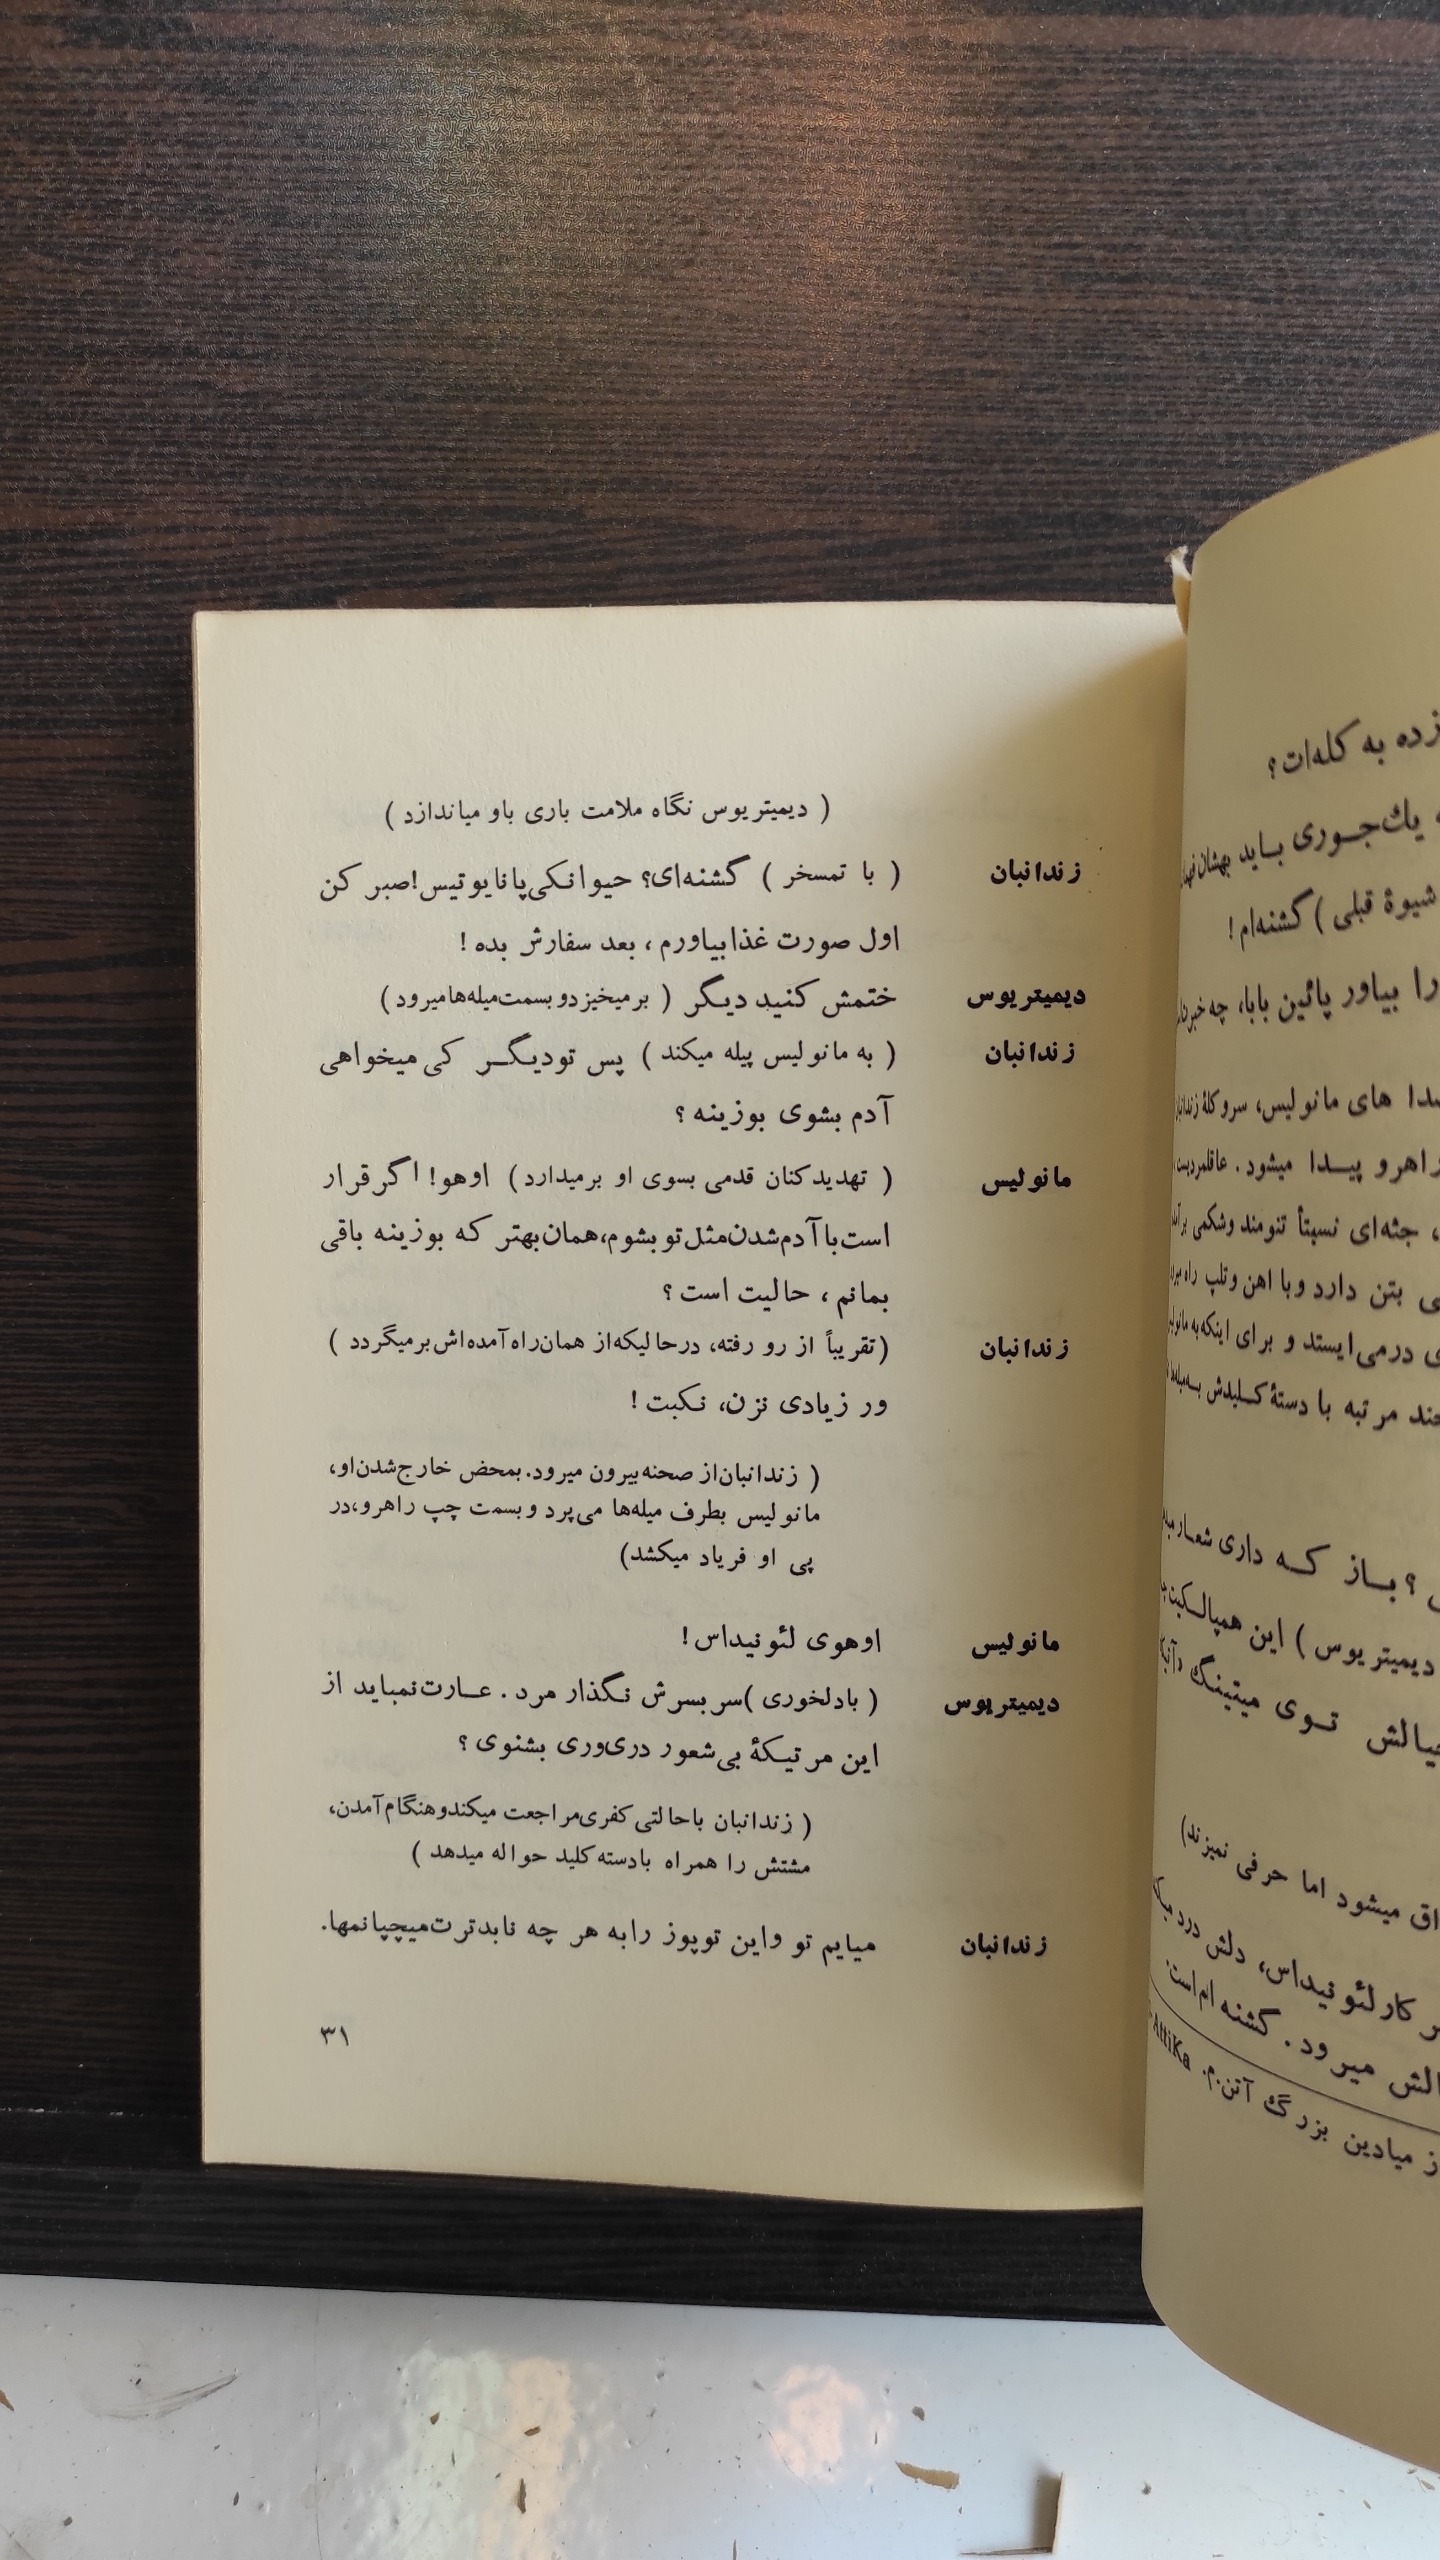 ( دیمیتریوس نگاه ملامت باری باو میاندازد )
زندانبان ( با تمسخر ) گشنه‌ای؟ حیوانکی پانایوتیس! صبر کن
اول صورت غذا بیاورم ، بعد سفارش بده !
دیمیتریوس ختمش کنید دیگر ( برمیخیزد و بسمت میله‌ها میرود )
زندانبان ( به مانولیس پیله میکند ) پس تو دیگر کی میخواهی
آدم بشوی بوزینه ؟
مانولیس ( تهدیدکنان قدمی بسوی او برمیدارد ) اوهو! اگر قرار
است با آدم شدن مثل تو بشوم، همان بهتر که بوزینه باقی
بمانم ، حالیت است ؟
زندانبان (تقریباً از رو رفته، درحالیکه از همان راه آمده‌اش برمیگردد )
ور زیادی نزن، نکبت !
( زندانبان از صحنه بیرون میرود. بمحض خارج شدن او،
مانولیس بطرف میله‌ها می‌پرد و بسمت چپ راهرو، در
پی او فریاد میکشد)
مانولیس اوهوی لئونیداس !
دیمیتریوس ( بادلخوری ) سر بسرش نگذار مرد . عارت نمیاید از
این مرتیکهٔ بی‌شعور دری‌وری بشنوی ؟
( زندانبان با حالتی کفری مراجعت میکند و هنگام آمدن،
مشتش را همراه با دسته کلید حواله میدهد )
زندانبان میایم تو و این توپوز را به هر چه نابدترت میچپانمها.
۳۱
زده به کله‌ات؟
یك جوری باید بهشان
شیوهٔ قبلی ) گشنه‌ام !
را بیاور پائین بابا، چه خبر
های مانولیس، سروکلهٔ
پیدا میشود . عاقلمردیست
، جثه‌ای نسبتاً تنومند وشکمی
بتن دارد و با اهن و تلپ راه
درمی‌ایستد و برای اینکه به
مرتبه با دستهٔ کلیدش
؟ باز که داری شعار
دیمیتریوس ) این همپالکیت
توی میتینگ
میشود اما حرفی نمیزند)
کار لئونیداس، دلش درد
میرود . گشنه ام است.
میادین بزرگ آتن.م. AttiKa